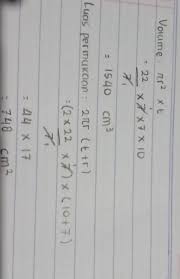 Volume πr² x t
= 22/7 x 7 x 7 x 10
= 1540 cm³
Luas permukaan = 2πr (t+r)
= (2 x 22/7 x 7) x (10+7)
= 44 x 17
= 748 cm²